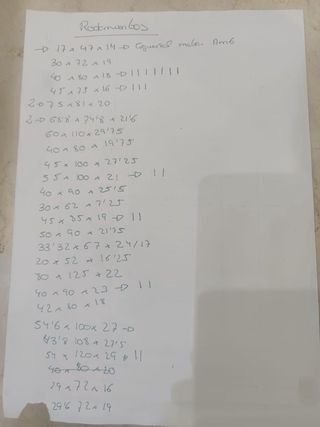 Rodamientos
→ 17 x 47 x 14 →
30 x 72 x 19
40 x 80 x 18 → | | | | | | |
45 x 75 x 16 → | | |
2→ 75 x 81 x 20
2→ 68'8 x 74'8 x 21'6
60 x 110 x 29'75
40 x 80 x 19'75
45 x 100 x 27'25
55 x 100 x 21 → | |
40 x 90 x 25'5
30 x 62 x 7'25
45 x 85 x 19 → | |
50 x 90 x 21'75
33'32 x 67 x 24/17
20 x 52 x 16'25
80 x 125 x 22
40 x 90 x 23 → | |
42 x 80 x 18
54'6 x 100 x 27 →
43'8 108 x 27'5
54 x 120 x 29 → | |
40 x 80 x 20
29 x 72 x 16
29'6 72 x 19